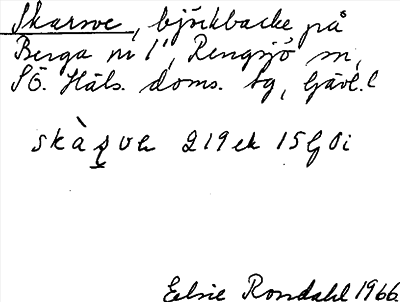 Skarve, björkbacke på
Berga nr 1, Rengsjö sn,
SÖ. Häls. doms. tg, Gävl. l
skàrve 219 ek 15G0i
Elsie Rondahl 1966